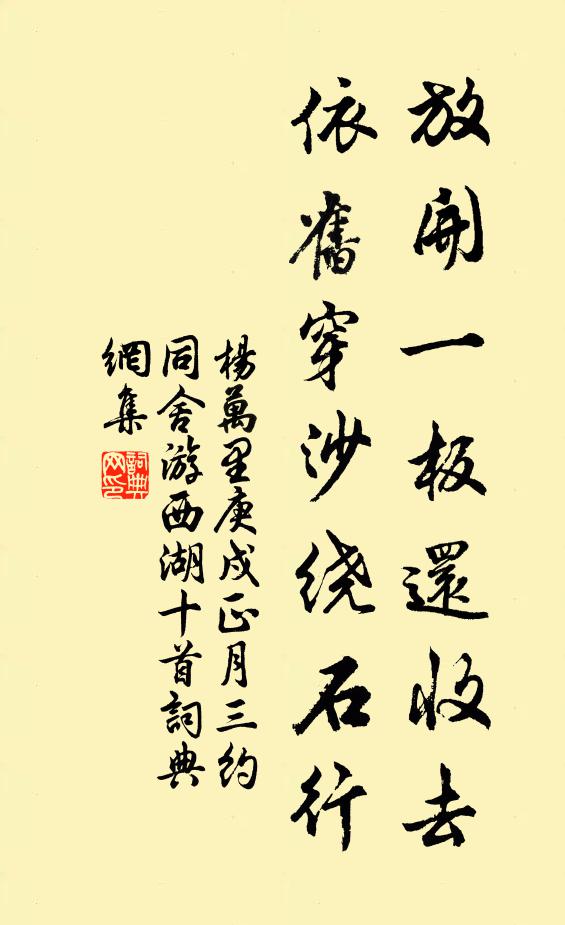 放開一板還收去
依舊穿沙绕石行
楊萬里庚戌正月三約
同舍游西湖十首詞典
網集
詞典
网印